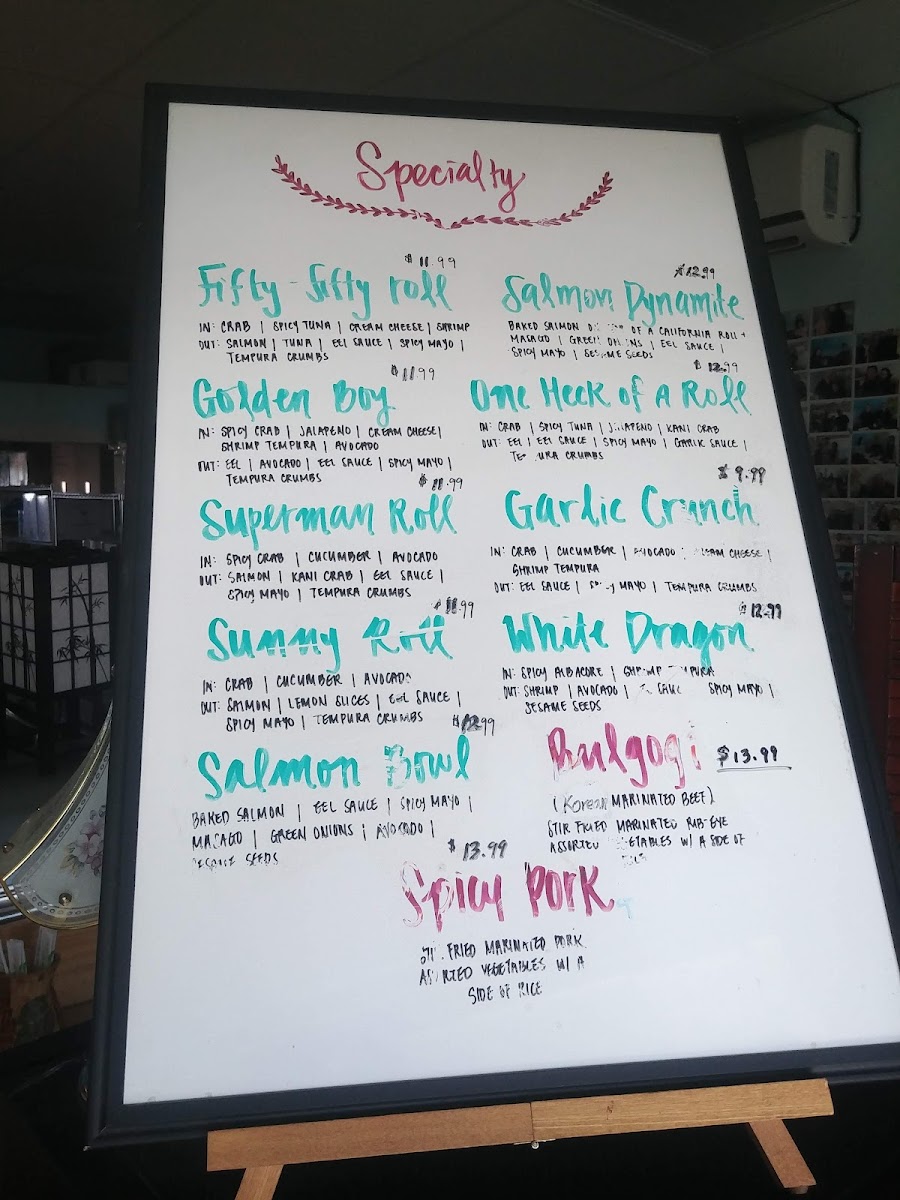 Specialty
$ 11.99
Fifty-fifty roll
IN: CRAB | SPICY TUNA | CREAM CHEESE | SHRIMP
OUT: SALMON | TUNA | EEL SAUCE | SPICY MAYO |
TEMPURA CRUMBS
$ 11.99
Golden Boy
IN: SPICY CRAB | JALAPENO | CREAM CHEESE |
SHRIMP TEMPURA | AVOCADO
OUT: EEL | AVOCADO | EEL SAUCE | SPICY MAYO |
TEMPURA CRUMBS
$ 11.99
Superman Roll
IN: SPICY CRAB | CUCUMBER | AVOCADO
OUT: SALMON | KANI CRAB | EEL SAUCE |
SPICY MAYO | TEMPURA CRUMBS
$ 11.99
Sunny Roll
IN: CRAB | CUCUMBER | AVOCADO
OUT: SALMON | LEMON SLICES | EEL SAUCE |
SPICY MAYO | TEMPURA CRUMBS
$12.99
Salmon Bowl
BAKED SALMON | EEL SAUCE | SPICY MAYO |
MASAGO | GREEN ONIONS | AVOCADO |
SESAME SEEDS
$12.99
Salmon Dynamite
BAKED SALMON OF A CALIFORNIA ROLL +
MASAGO | GREEN ONIONS | EEL SAUCE |
SPICY MAYO | SESAME SEEDS
$ 12.99
One Heck of A Roll
IN: CRAB | SPICY TUNA | JALAPENO | KANI CRAB
OUT: EEL | EEL SAUCE | SPICY MAYO | GARLIC SAUCE |
TEMPURA CRUMBS
$ 9.99
Garlic Crunch
IN: CRAB | CUCUMBER | AVOCADO | CREAM CHEESE |
SHRIMP TEMPURA
OUT: EEL SAUCE | SPICY MAYO | TEMPURA CRUMBS
$ 12.99
White Dragon
IN: SPICY ALBACORE | SHRIMP TEMPURA
OUT: SHRIMP | AVOCADO | SAUCE SPICY MAYO |
SESAME SEEDS
Bulgogi $13.99
(Korean MARINATED BEEF)
STIR FRIED MARINATED RIB-EYE
ASSORTED VEGETABLES W/ A SIDE OF
$ 13.99
Spicy Pork
STIR FRIED MARINATED PORK
ASSORTED VEGETABLES W/ A
SIDE OF RICE